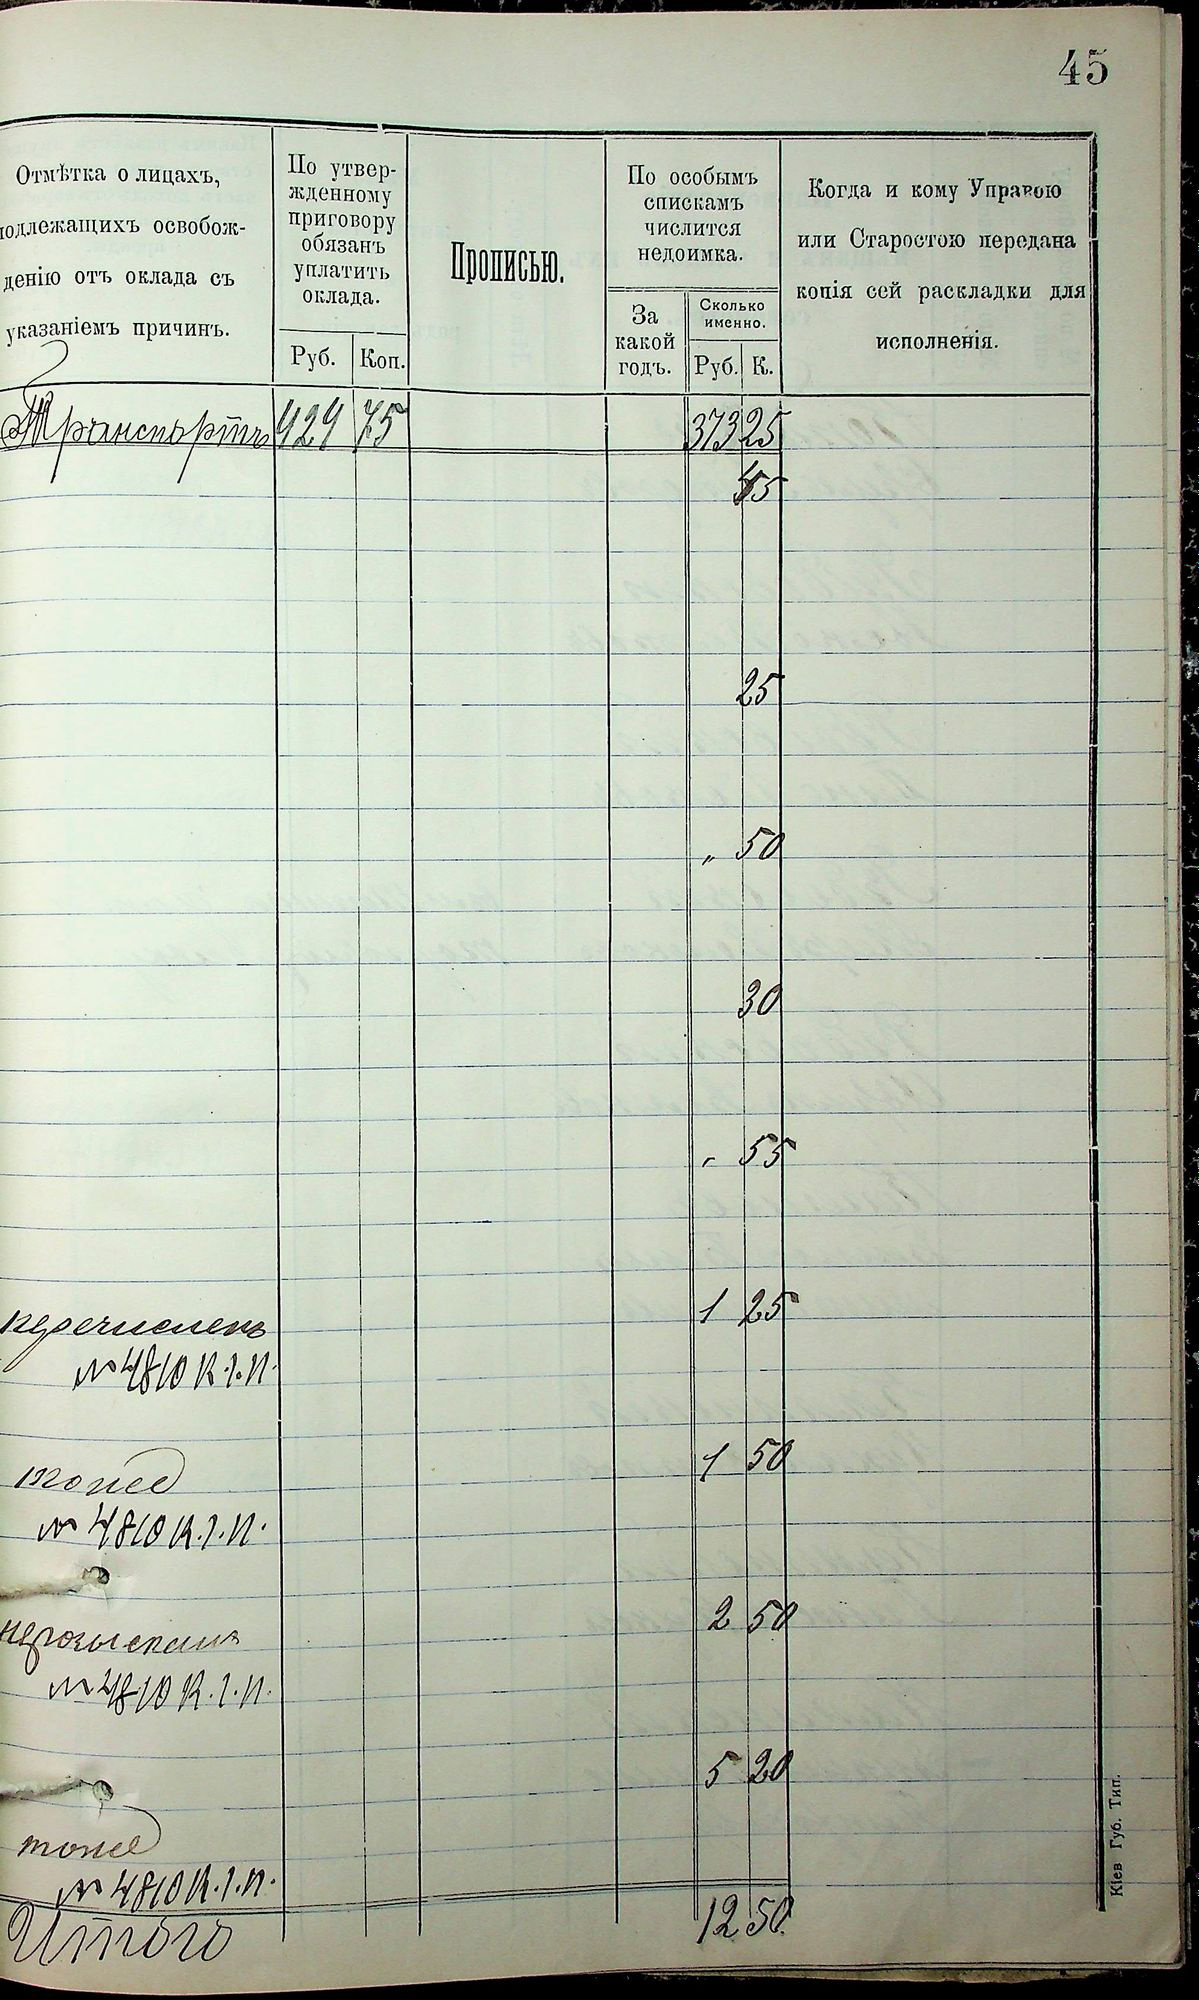 45
Отмѣтка о лицахъ,
подлежащихъ освобож-
денію отъ оклада съ
указаніемъ причинъ.
По утвер-
жденному
приговору
обязанъ
уплатить
оклада.
Руб. Коп.
Прописью.
По особымъ
спискамъ
числится
недоимка.
За
какой
годъ.
Сколько
именно.
Руб. К.
Когда и кому Управою
или Старостою передана
копія сей раскладки для
исполненія.
Транспортъ 929 75 373 25
45
25
" 50
30
" 55
1 25
перечисленъ
№ 4810 К.І.П.
1 50
тоже
№ 4810 К.І.П.
2 50
№ 4810 К.І.П.
5 20
тоже
№ 4810 К.І.П.
Итого 12 50
Кіев Губ. Тип.